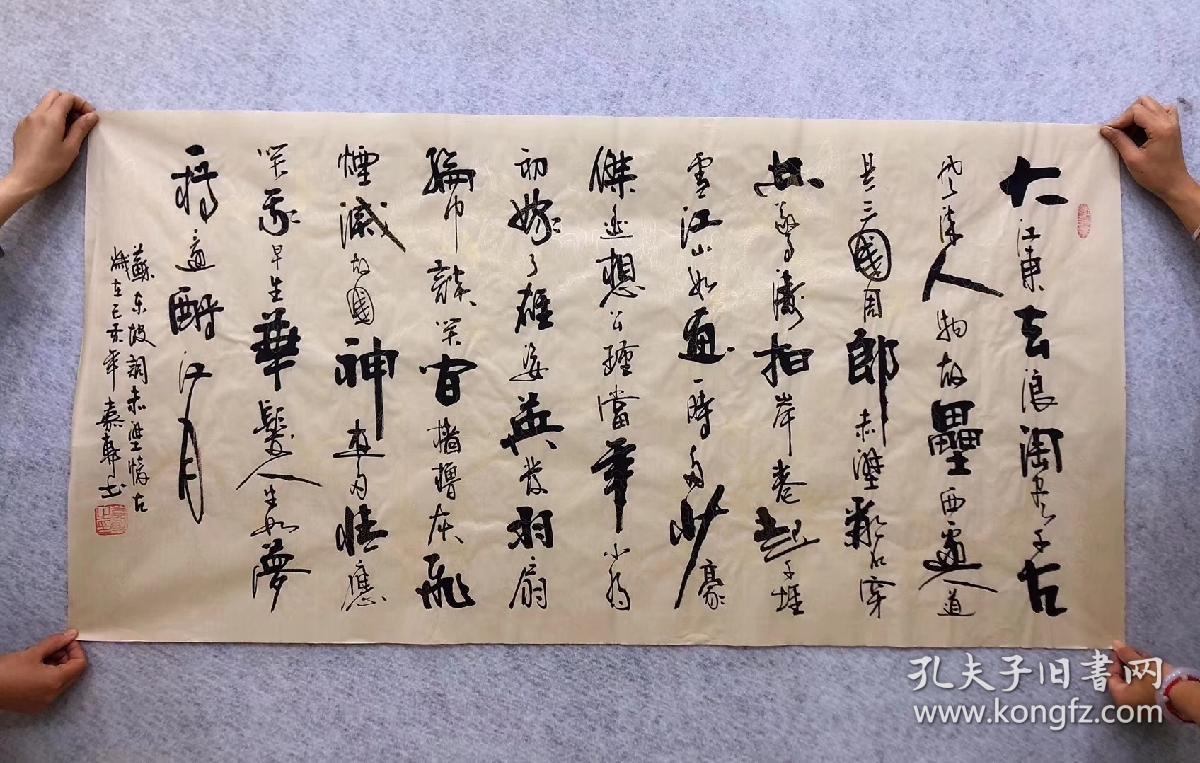 大江東去浪淘尽千古
風流人物故壘西邊人道
是三國周郎赤壁亂石穿
空驚濤拍岸卷起千堆
雪江山如畫一時多少豪
傑遥想公瑾當年小喬
初嫁了雄姿英發羽扇
綸巾談笑間檣櫓灰飛
煙滅故國神遊多情應
笑我早生華髮人生如夢
一樽還酹江月
蘇东坡詞赤壁懷古
歲在己亥年
孔夫子旧書网
www.kongfz.com